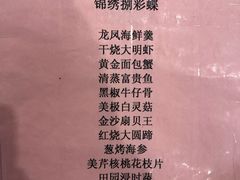 锦绣捌彩蝶
龙凤海鲜羹
干烧大明虾
黄金面包蟹
清蒸富贵鱼
黑椒牛仔骨
美极白灵菇
金沙扇贝王
红烧大圆蹄
葱烤海参
美芹核桃花枝片
田园浸时蔬